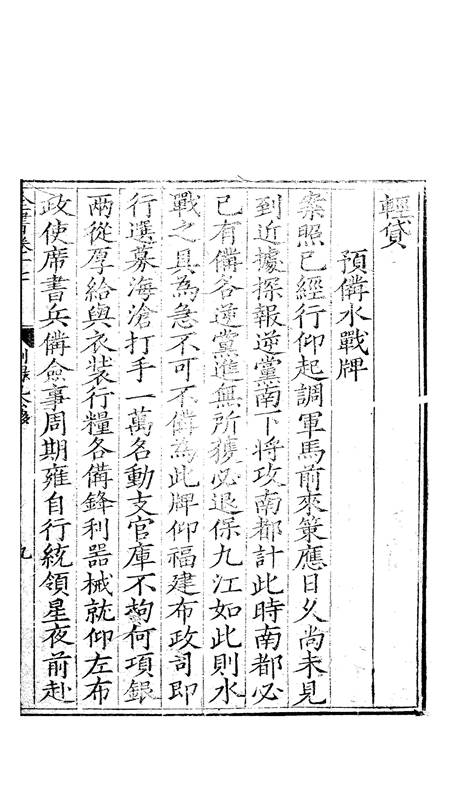 輕貸
預備水戰牌
案照已經行仰起調軍馬前來策應日久尚未見
到近據探報逆黨南下將攻南都計此時南都必
已有備各逆黨進無所獲必退保九江如此則水
戰之具為急不可不備為此牌仰福建布政司即
行選募海滄打手一萬名動支官庫不拘何項銀
兩從厚給與衣裝行糧各備鋒利器械就仰左布
政使席書兵備僉事周期雍自行統領星夜前赴
全書卷十七
九